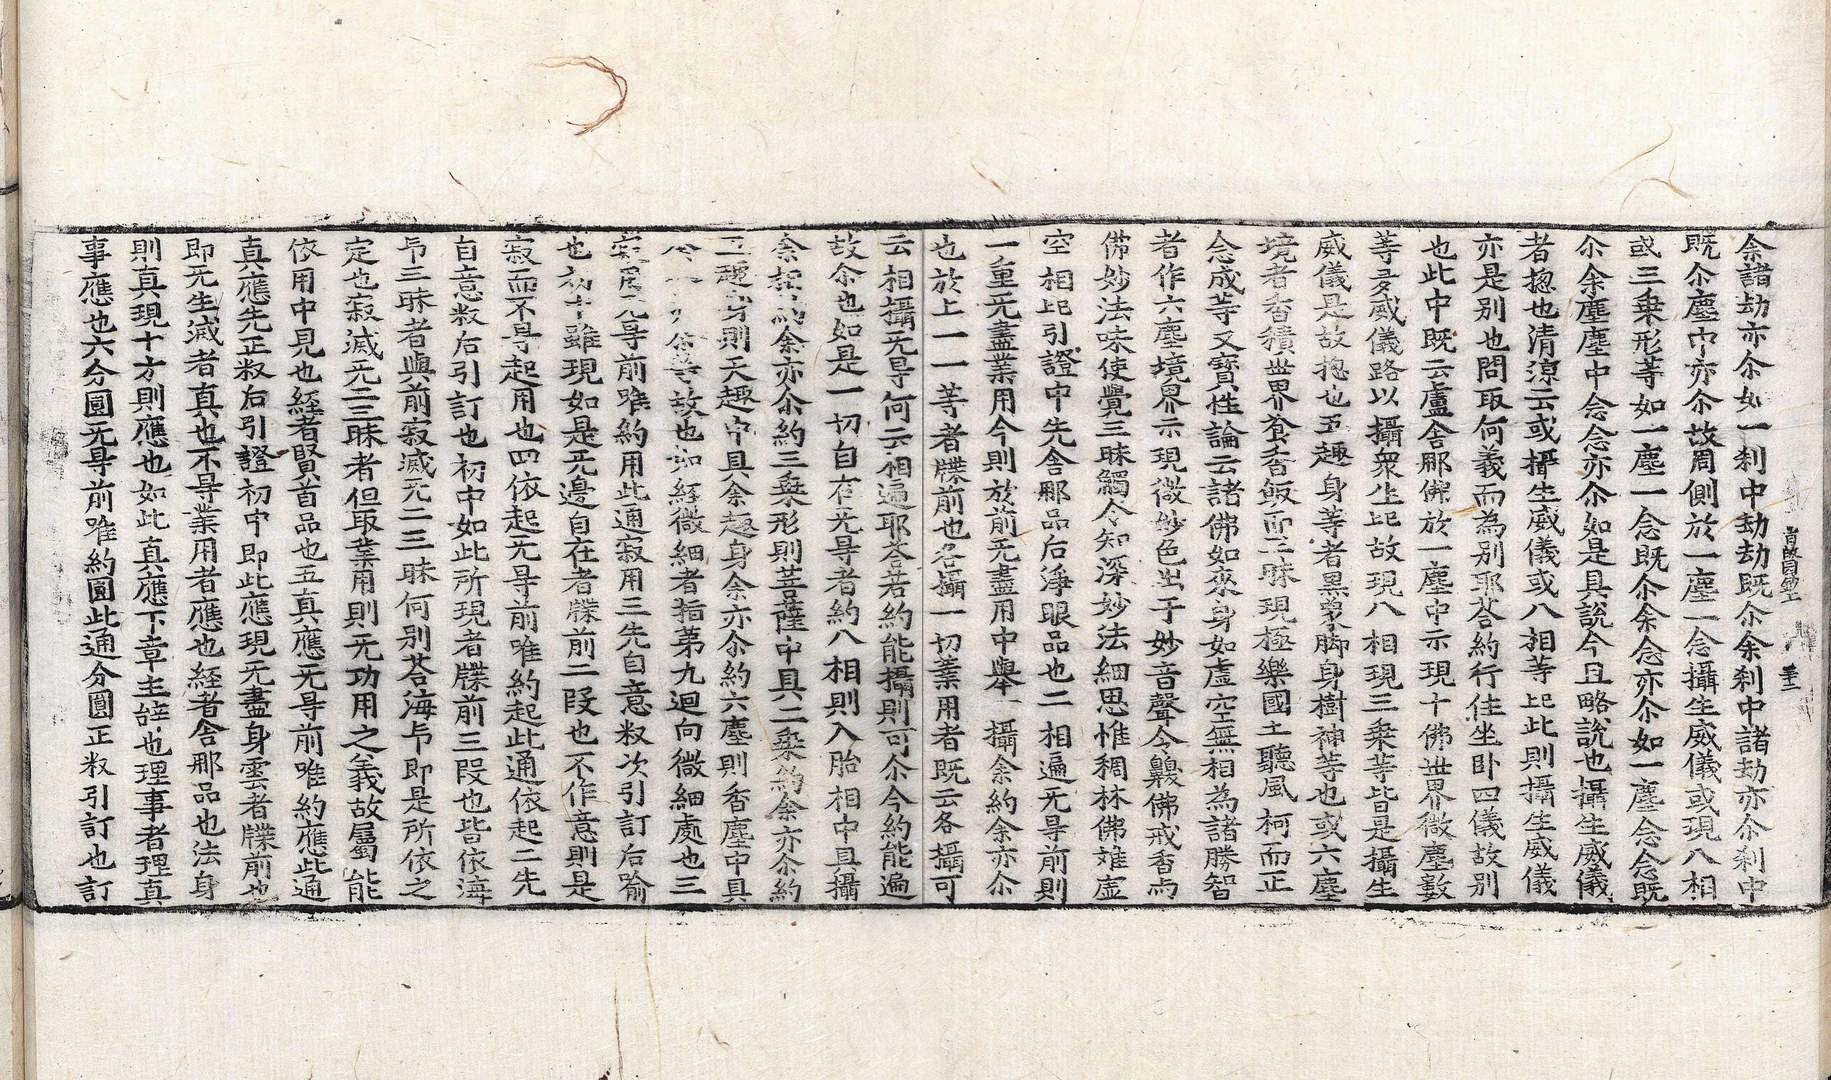 余諸劫亦尒如一刹中劫劫既尒余刹中諸劫亦尒刹中
既尒塵中亦尒故周側於一塵一念攝生威儀或現八相
或三乗形等如一塵一念既尒余念亦尒如一塵念念既
尒余塵塵中念念亦尒如是具說今且略說也攝生威儀
者揔也清涼云或攝生威儀或八相等比此則攝生威儀
亦是別也問取何義而為別耶荅約行住坐卧四儀故別
也此中既云盧舍那佛於一塵中示現十佛世界微塵數
等多威儀路以攝衆生比故現八相現三乗等皆是攝生
威儀是故揔也五趣身等者黑象脚身樹神等也或六塵
境者香積世界飡香飯而三昧現極樂國土聽風柯而正
念成等又寶性論云諸佛如來身如虛空無相為諸勝智
者作六塵境界示現微妙色出于妙音聲令齅佛戒香与
佛妙法味使覺三昧觸令知深妙法細思惟稠林佛雉虛
空相比引證中先舍那品后淨眼品也二相遍无㝵前則
一重无盡業用今則於前无盡用中舉一攝余約余亦尒
也於上一一等者牒前也各攝一切業用者既云各攝可
云相攝无㝵何云相遍耶荅若約能攝則可尒今約能遍
故尒也如是一切自在无㝵者約八相則入胎相中具攝
余相約余亦尒約三乗形則菩薩中具二乗約余亦尒約
五趣身則天趣中具余趣身余亦尒約六塵則香塵中具
等故也如経微細者指第九迴向微細處也三
寂用无㝵前唯約用此通寂用三先自意叙次引訂后喻
也初中雖現如是无邊自在者牒前二段也不作意則是
寂而不㝵起用也四依起无㝵前唯約起此通依起二先
自意叙后引訂也初中如此所現者牒前三段也皆依海
印三昧者與前寂滅无二三昧何別荅海印即是所依之
定也寂滅无二三昧者但取業用則无功用之義故屬能
依用中見也経者賢首品也五真應无㝵前唯約應此通
真應先正叙后引證初中即此應現无盡身雲者牒前也
即无生滅者真也不㝵業用者應也経者舍那品也法身
則真現十方則應也如此真應下章主䛐也理事者理真
事應也六分圓无㝵前唯約圓此通分圓正叙引訂也訂